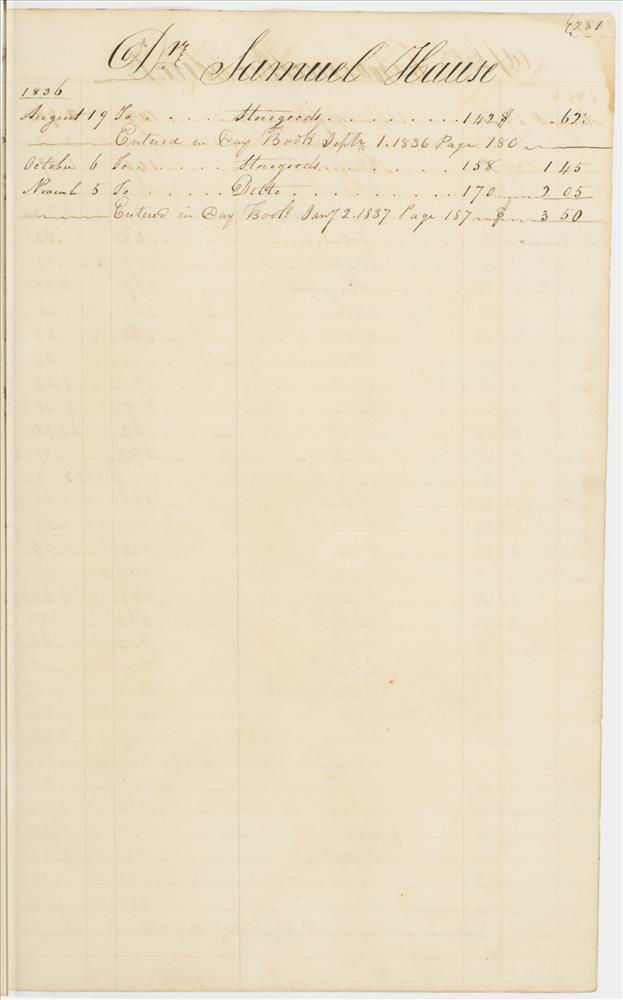 281
Dr. Samuel Hause
1836
August 19 To . . . . . Storegoods . . . . . . . . 142 $ . 62½
Entered in Day Book Septr 1. 1836 Page 180
October 6 To . . . . . Storegoods . . . . . . . . 158 1 45
Novemb 5 To . . . . . Ditto . . . . . . . . . 170 2 05
Entered in Day Book Jany 2. 1837 Page 187 $ 3 50